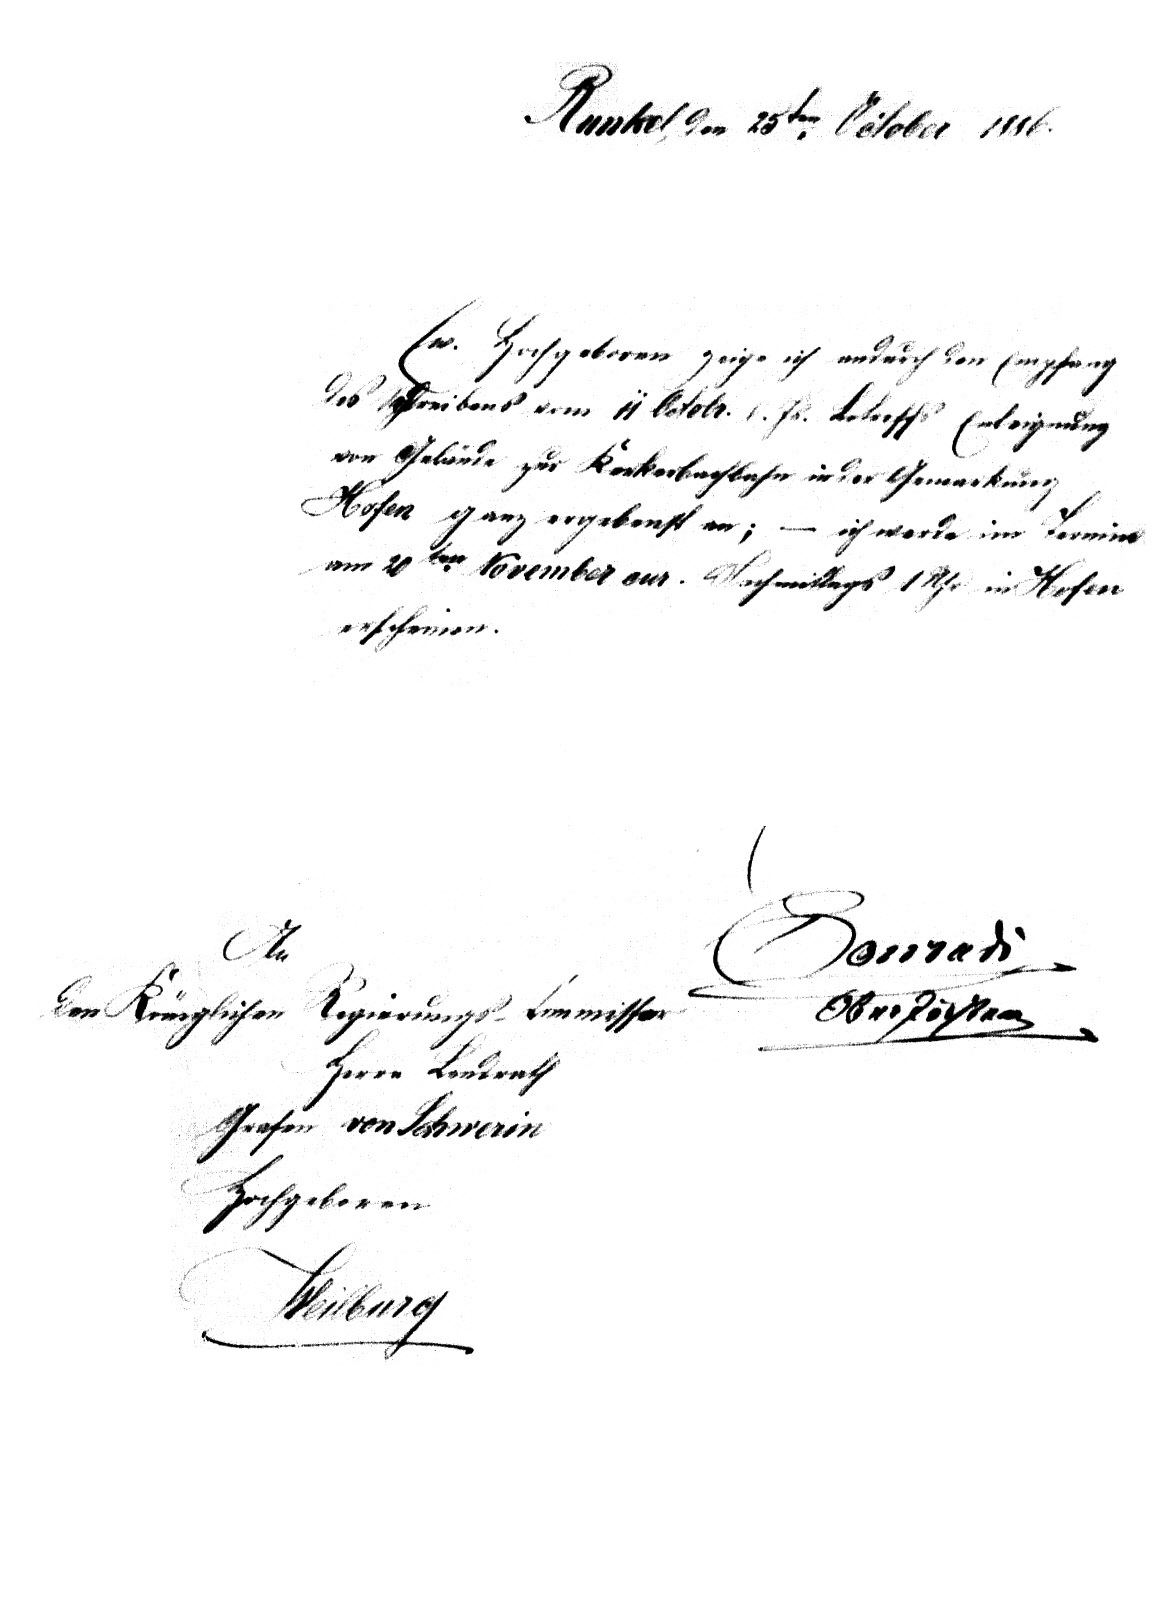 Runkel, den 25ten October 1886.
Ew. Hochgeboren zeige ich andurch den Empfang
des Schreibens vom 11 Octobr. l. Js. betreffs Enteignung
von Gelände zur Kerkerbachbahn in der Gemarkung
Hofen ganz ergebenst an; — ich werde im Termine
am 20ten November cur. Nachmittags 1 Uhr in Hofen
erscheinen.
Conradi
Oberförster
An
den Königlichen Regierungs-Commissar
Herrn Landrath
Grafen von Schwerin
Hochgeboren
Weilburg